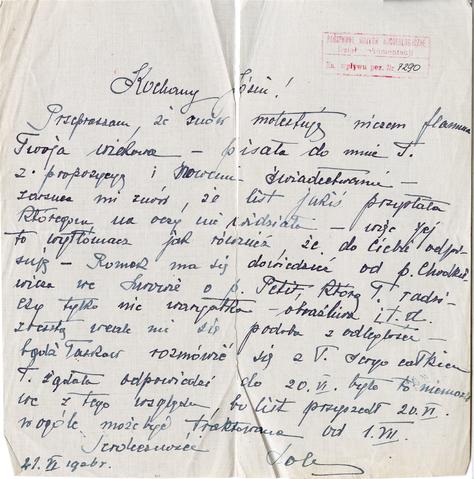 PAŃSTWOWE MUZEUM ARCHEOLOGICZNE
Dział Dokumentacji
Ks. wpływu poz. Nr 7290
Kochany Józiu!
Przepraszam, że znów molestuję niczem flamma
Twoja wiekowa – pisała do mnie T.
z propozycją i nowemi świadectwami –
zarzuca mi znów, że list jakiś przysłała
którego na oczy nie widziała – więc jej
to wytłomacz jak również, że do Ciebie odpo-
suję – Romek ma się dowiedzieć od p. Chodkie-
wicza we Lwowie o p. Petit którą T. radzi
czy tylko nie waryatka – obraźliwa i t. d.
zresztą wcale mi się podoba z odległości –
bądź łaskaw rozmówić się z T. serjo całkiem
T. żądała odpowiedzi do 20. VI. było to niemożli
we z tego względu bo list przyszedł 20. VI.
wogóle może być traktowana od 1. VII.
Serdeczności
21. VI 1926 r.